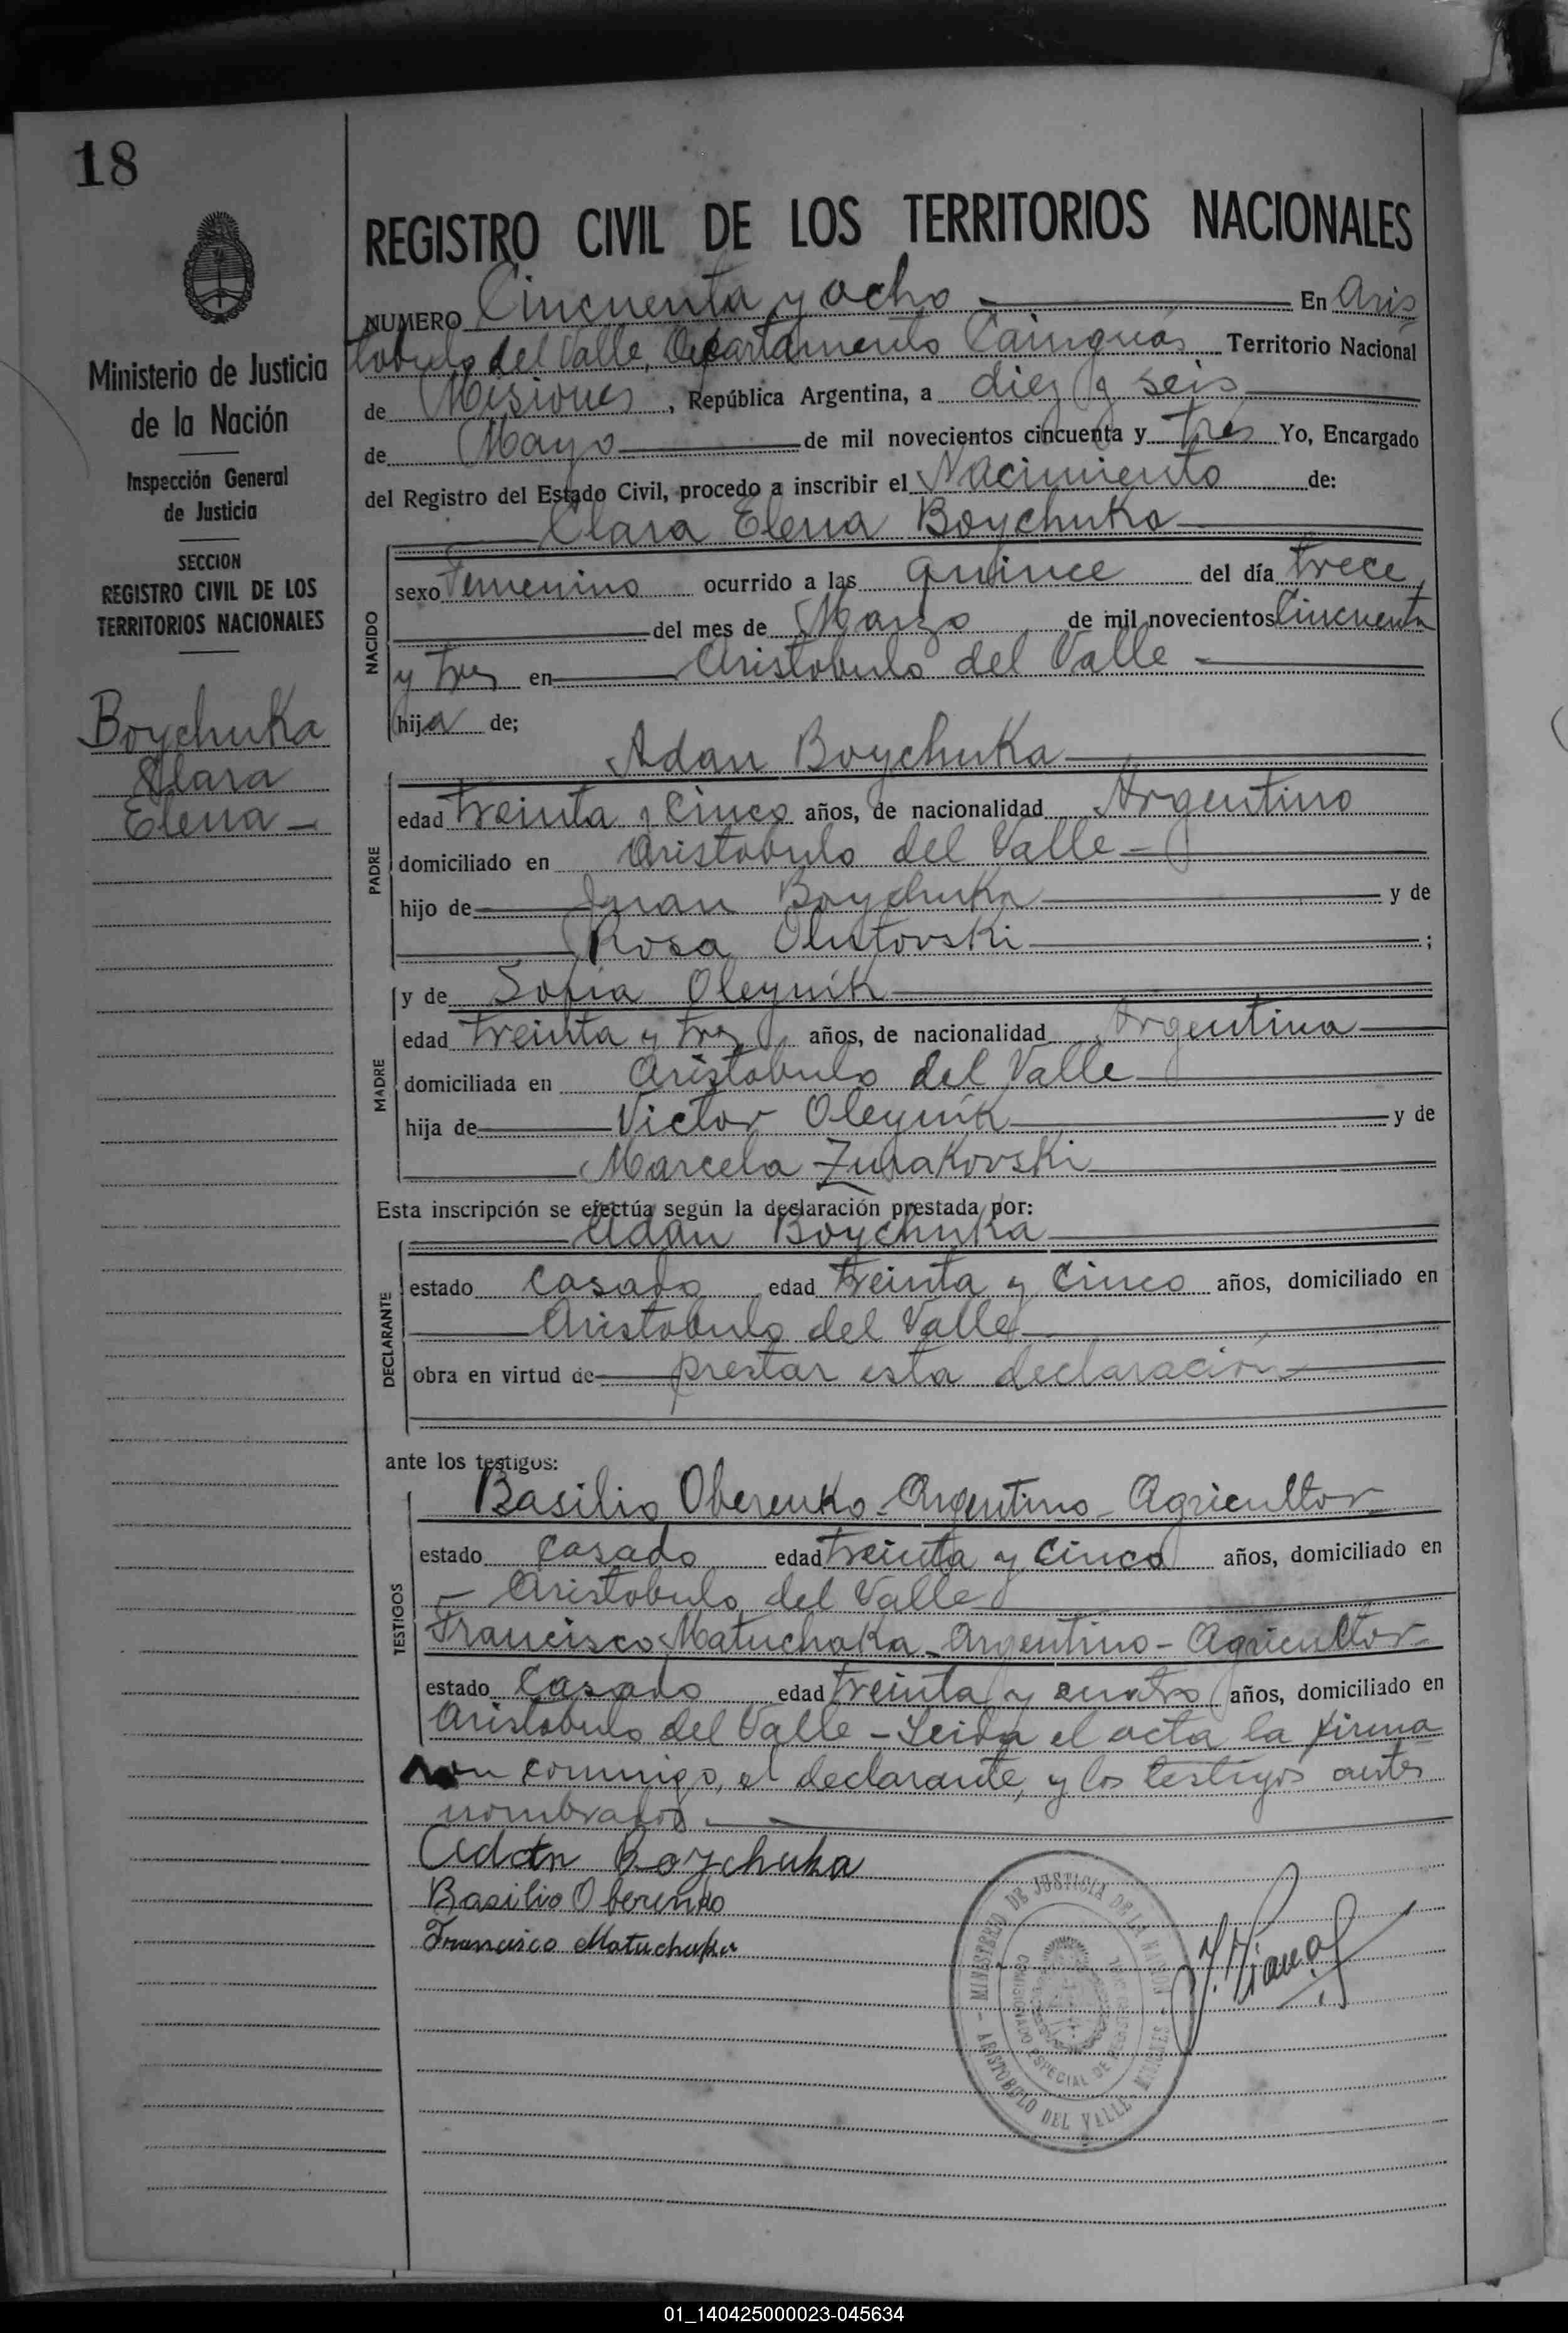 18
Ministerio de Justicia
de la Nación
Inspección General
de Justicia
SECCION
REGISTRO CIVIL DE LOS
TERRITORIOS NACIONALES
Boychuka
Clara
Elena -
REGISTRO CIVIL DE LOS TERRITORIOS NACIONALES
NUMERO Cincuenta y ocho En Aris
tobulo del Valle, Departamento Cainguás Territorio Nacional
de Misiones, República Argentina, a diez y seis
de Mayo de mil novecientos cincuenta y tres Yo, Encargado
del Registro del Estado Civil, procedo a inscribir el Nacimiento de:
Clara Elena Boychuka
NACIDO
sexo Femenino ocurrido a las quince del día trece,
del mes de Marzo de mil novecientos Cincuenta
y tres en Aristobulo del Valle -
hija de;
Adan Boychuka
PADRE
edad treinta y cinco años, de nacionalidad Argentino
domiciliado en Aristobulo del Valle -
hijo de Juan Boychuka y de
Rosa Olutovski ;
MADRE
y de Sofia Oleynik
edad treinta y tres años, de nacionalidad Argentina
domiciliada en Aristobulo del Valle
hija de Victor Oleynik y de
Marcela Zurakovski
Esta inscripción se efectúa según la declaración prestada por:
Adan Boychuka
DECLARANTE
estado Casado edad treinta y cinco años, domiciliado en
Aristobulo del Valle
obra en virtud de prestar esta declaración
ante los testigos:
TESTIGOS
Basilio Oberenko - Argentino - Agricultor
estado Casado edad treinta y cinco años, domiciliado en
- Aristobulo del Valle
Francisco Matuchaka - Argentino - Agricultor -
estado Casado edad treinta y cuatro años, domiciliado en
Aristobulo del Valle - Leida el acta la firma
con conmigo, el declarante, y los testigos antes
nombrados. -
Adan Boychuka
Basilio Oberenko
Francisco Matuchaka
MINISTERIO DE JUSTICIA DE LA NACION
COMISIONADO ESPECIAL DE
- ARISTOBULO DEL VALLE - MISIONES -
01_140425000023-045634